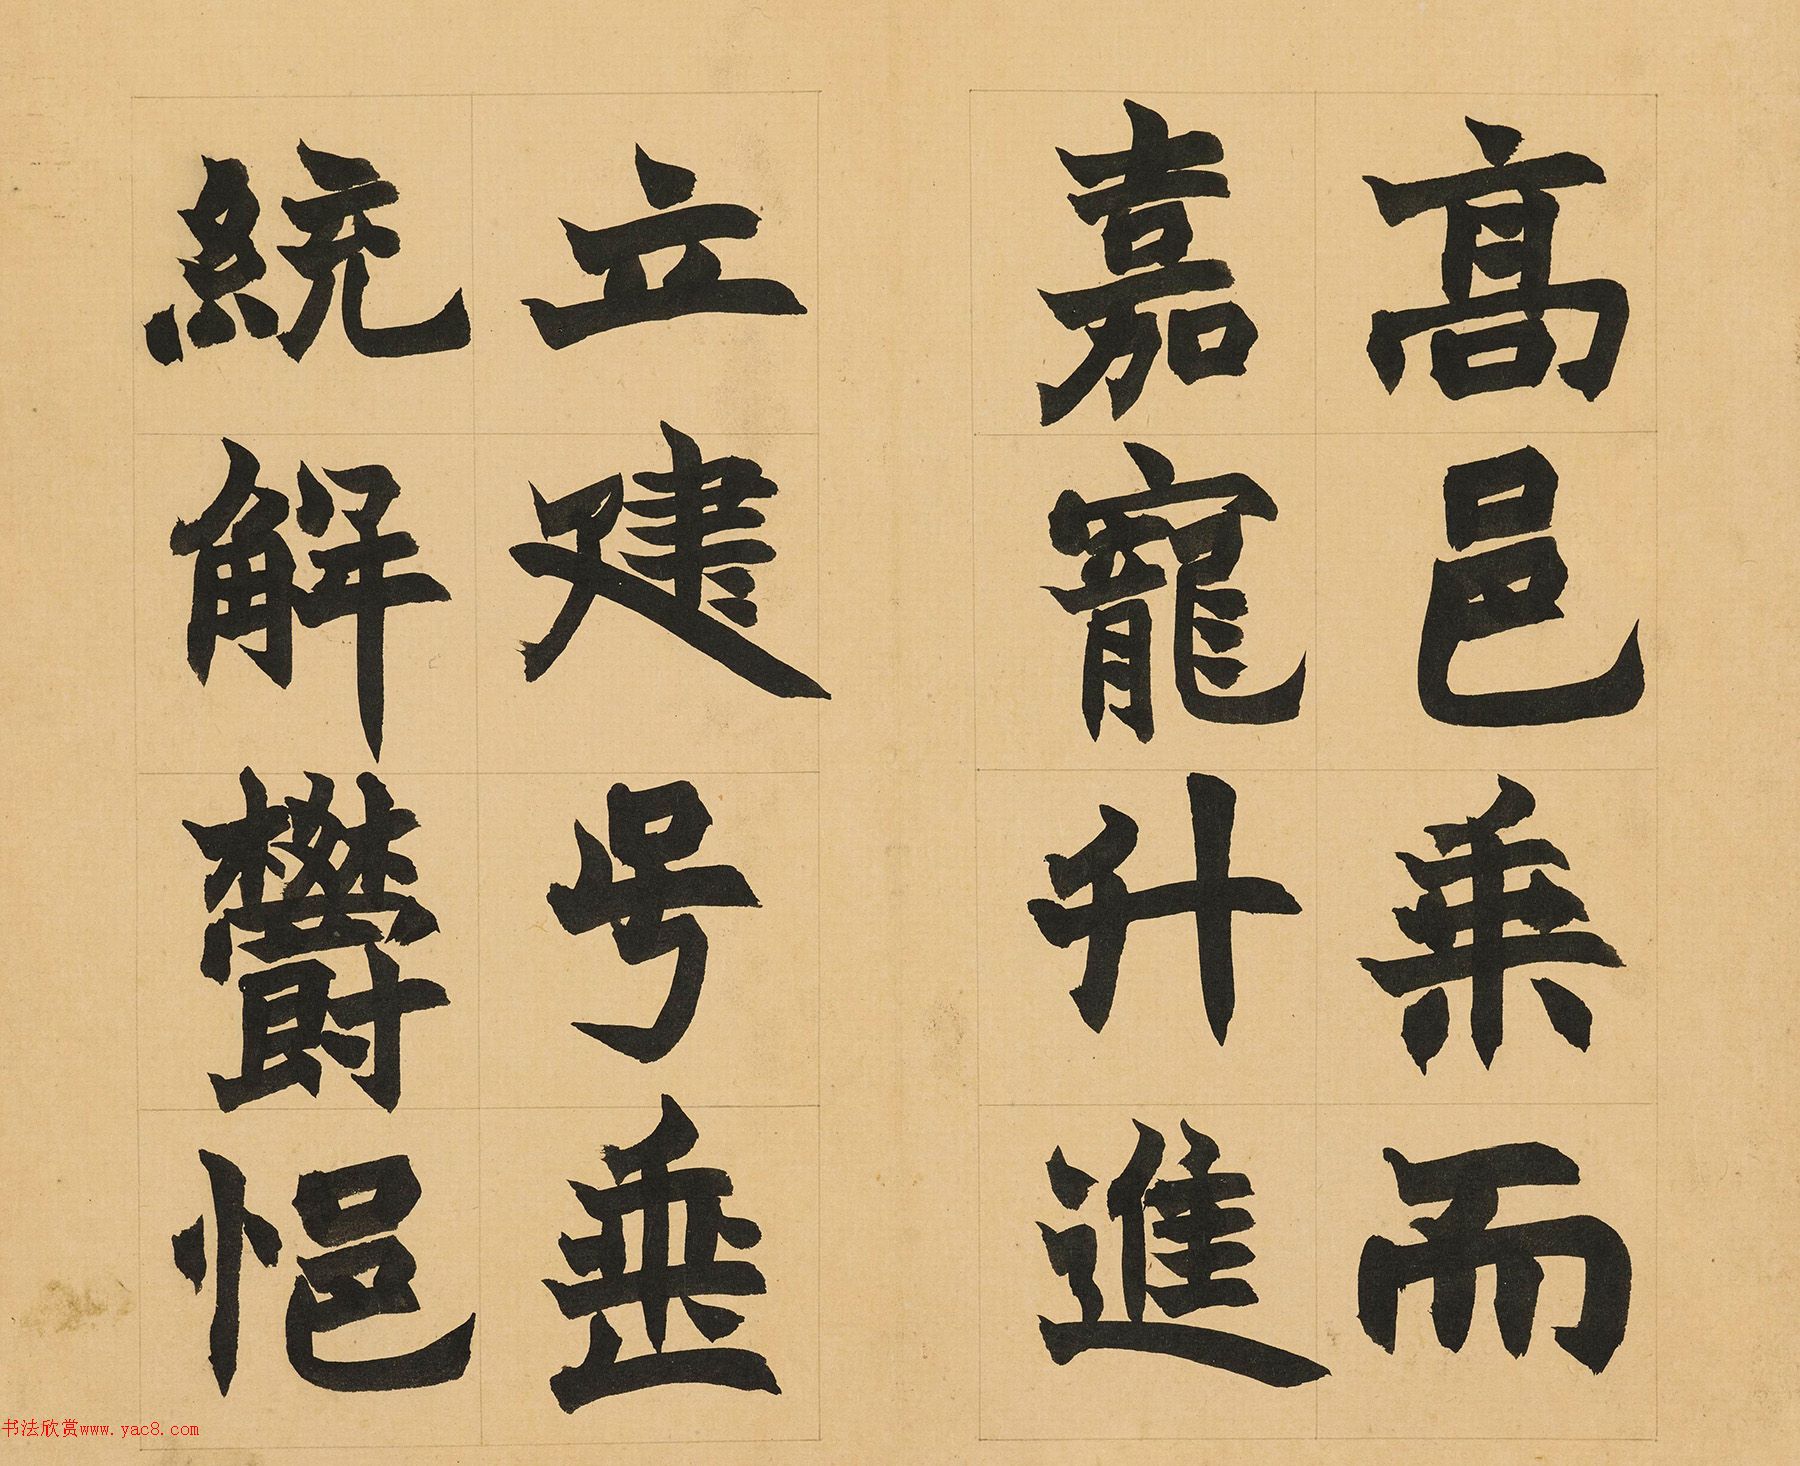 高邑乗而
嘉寵升進
立建号垂
統解欝悒
书法欣赏www.yac8.com